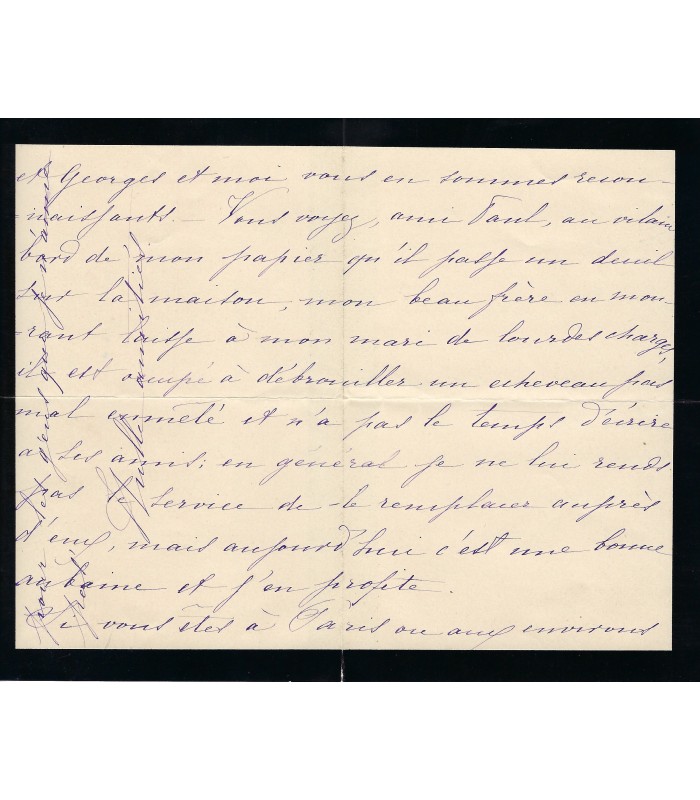 et Georges et moi vous en sommes recon-
-naissants. — Vous voyez, ami Paul, au vilain
bord de mon papier qu'il passe un deuil
sur la maison, mon beau frère en mou-
rant laisse à mon mari de lourdes charges,
il est occupé à débrouiller un écheveau pas
mal emmêlé et n'a pas le temps d'écrire
à ses amis; en général je ne lui rends
pas le service de le remplacer auprès
d'eux, mais aujourd'hui c'est une bonne
aubaine et j'en profite.
Si vous êtes à Paris ou aux environs
pour les gens que j'aime